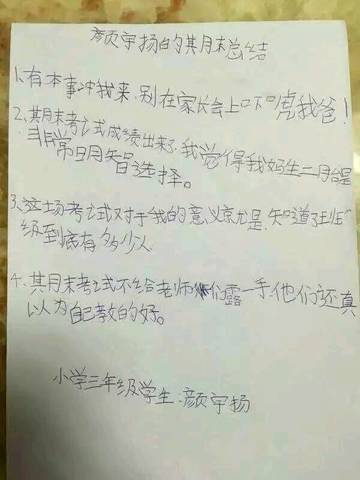 颜宇扬的期末总结
1.有本事冲我来,别在家长会上口不唬我爸!
2.期末考试成绩出来了,我觉得我妈生二胎是
非常明智选择。
3.这场考试对于我的意义就是知道了班
级到底有多少人
4.期末考试不给老师们露一手,他们还真
以为自己教的好。
小学三年级学生:颜宇扬